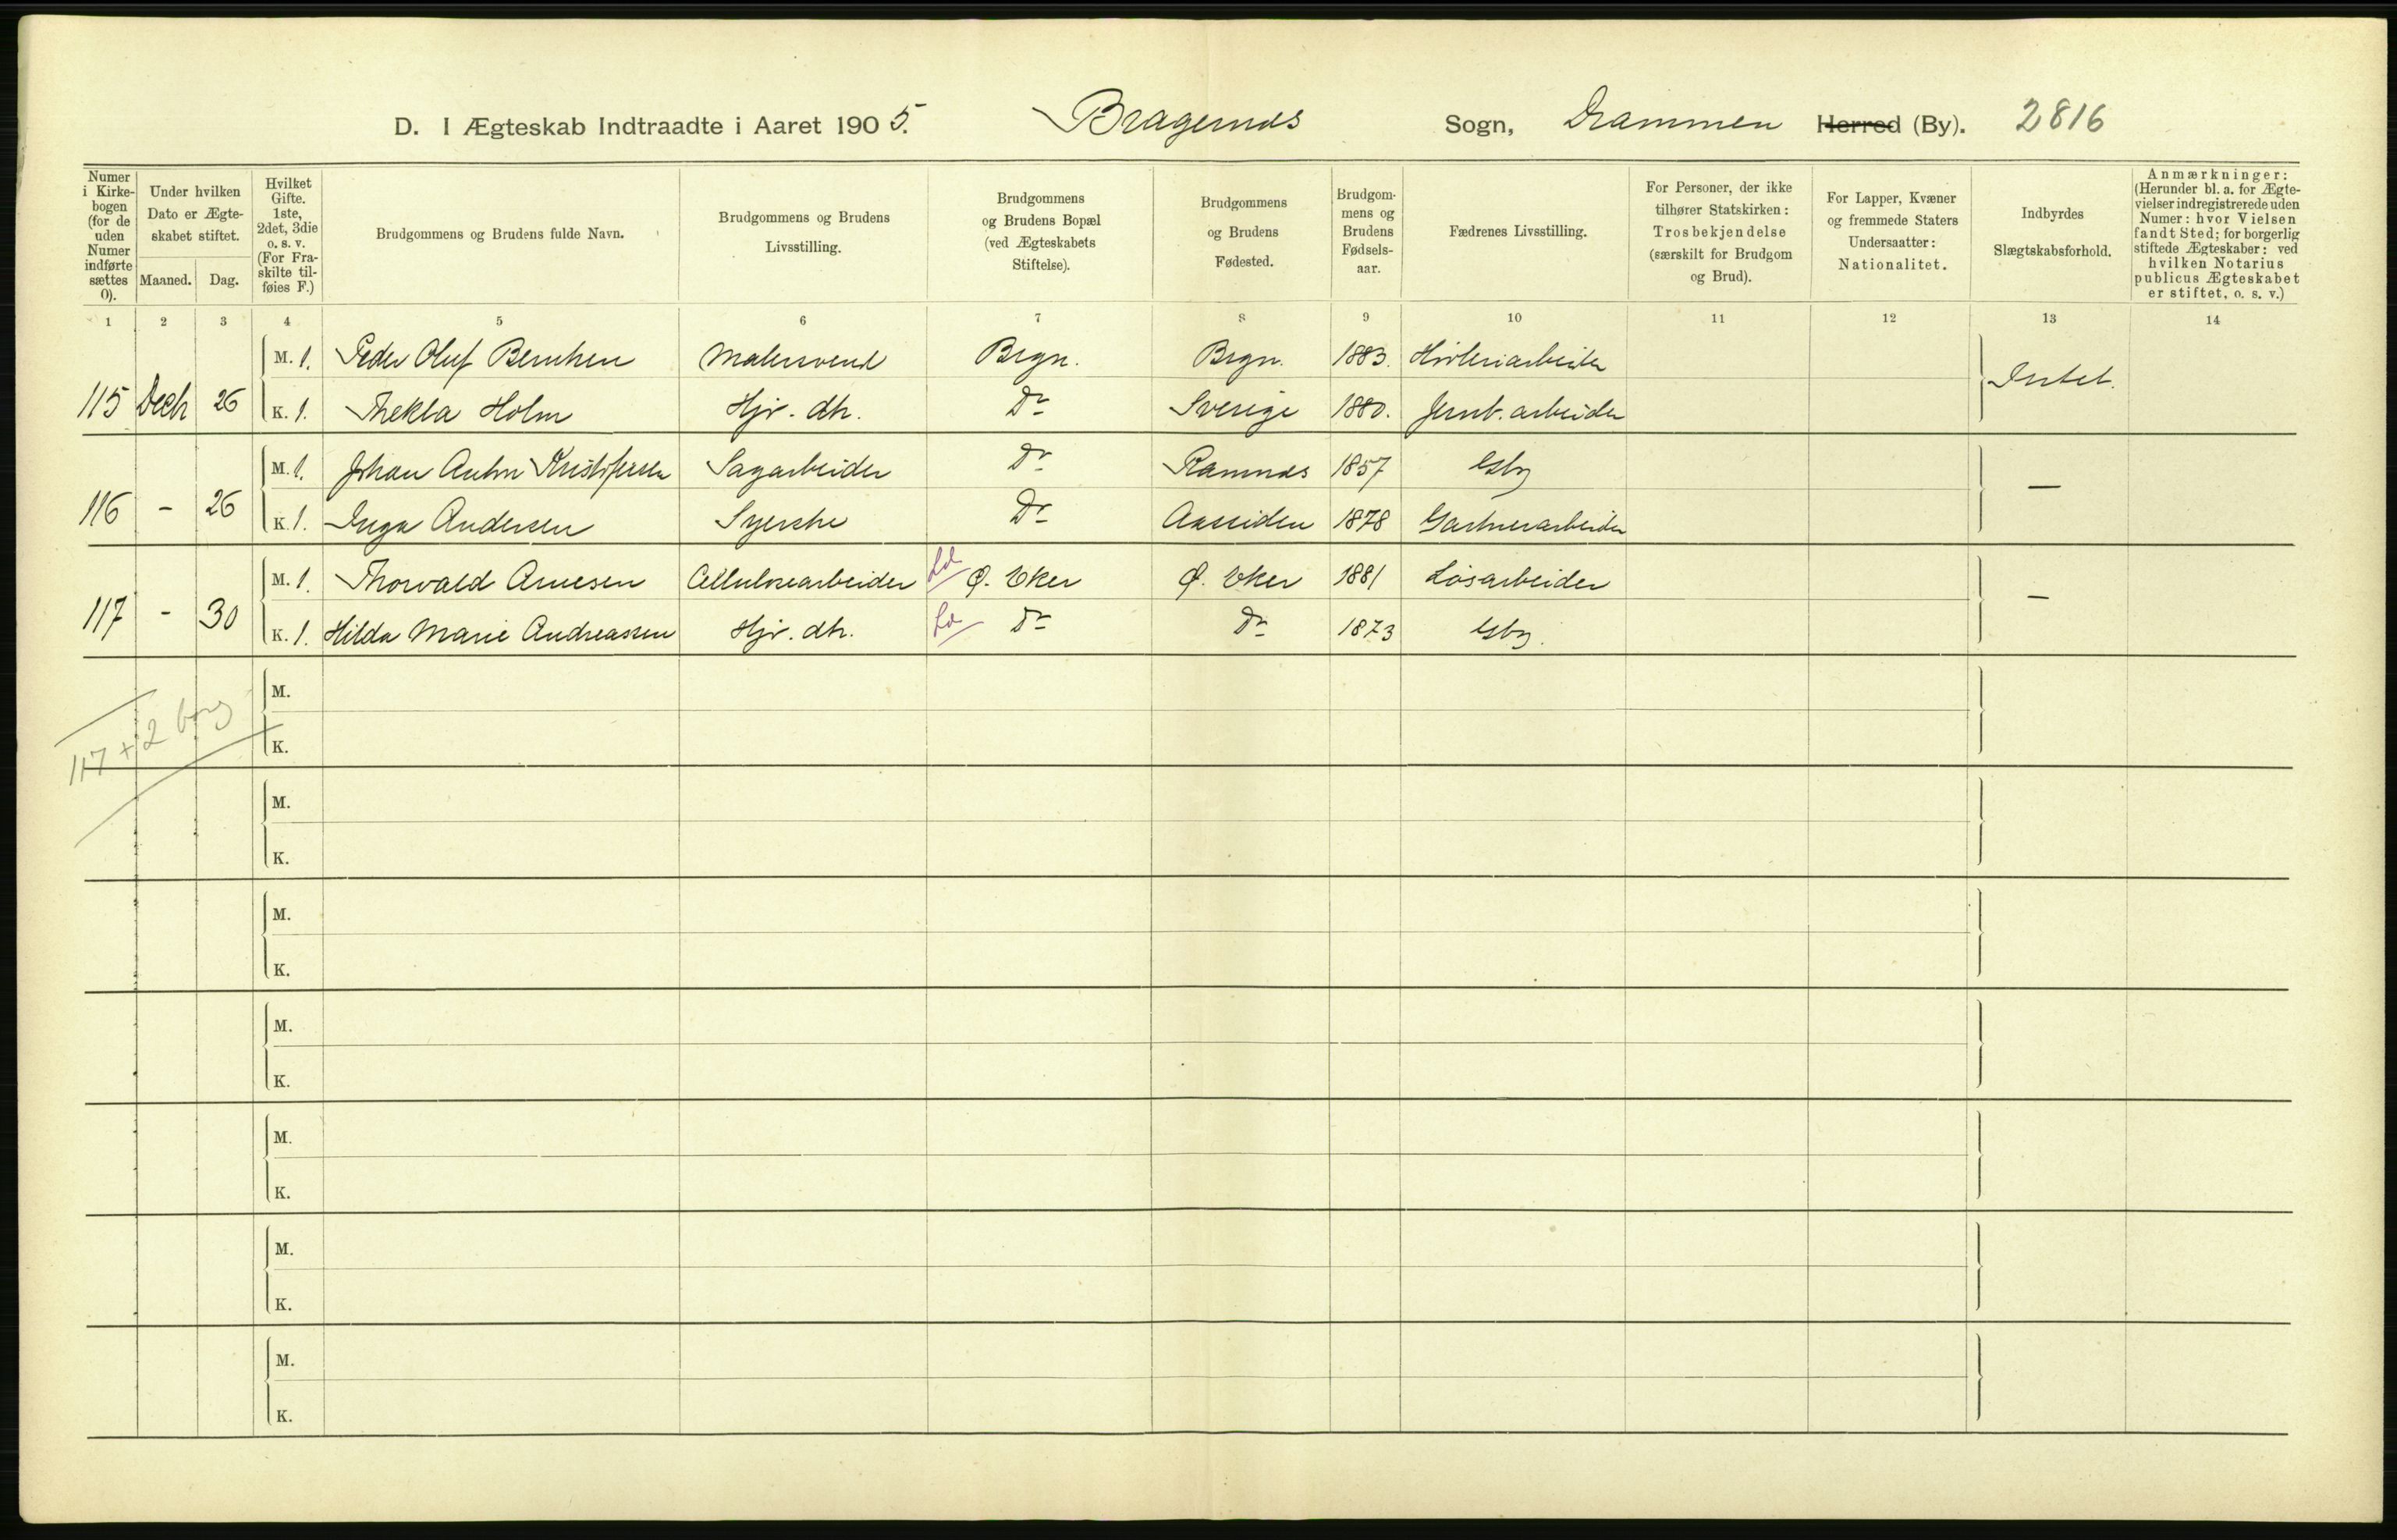 D. I Ægteskab Indtraadte i Aaret 1905. Bragernæs Sogn, Drammen Herred (By). 2816
Numer i Kirkebogen (for de uden Numer indførte sættes 0).
Under hvilken Dato er Ægteskabet stiftet.
Maaned. Dag.
Hvilket Gifte. 1ste, 2det, 3die o. s. v. (For Fraskilte tilføies F.)
Brudgommens og Brudens fulde Navn.
Brudgommens og Brudens Livsstilling.
Brudgommens og Brudens Bopæl (ved Ægteskabets Stiftelse).
Brudgommens og Brudens Fødested.
Brudgommens og Brudens Fødselsaar.
Fædrenes Livsstilling.
For Personer, der ikke tilhører Statskirken: Trosbekjendelse (særskilt for Brudgom og Brud).
For Lapper, Kvæner og fremmede Staters Undersaatter: Nationalitet.
Indbyrdes Slægtskabsforhold.
Anmærkninger: (Herunder bl. a. for Ægtevielser indregistrerede uden Numer: hvor Vielsen fandt Sted; for borgerlig stiftede Ægteskaber: ved hvilken Notarius publicus Ægteskabet er stiftet, o. s. v.)
1 2 3 4 5 6 7 8 9 10 11 12 13 14
M. 1. Peder Oluf Berntsen Malersvend Brgn. Brgn. 1883. Høvleriarbeider
115 Decb 26 K. 1. Thekla Holm Hjv. dtr. Do Sverige 1880. Jernb. arbeider Intet.
M. 1. Johan Anton Kristofersen Sagarbeider Do Ramnæs 1857 Gbr
116 - 26 K. 1. Inga Andersen Syerske Do Aassiden 1878 Gartnerarbeider —
M. 1. Thorvald Arnesen Cellulosearbeider Ø. Eker Ø. Eker 1881 Løsarbeider
117 - 30 K. 1. Hilda Marie Andreassen Hjv. dtr. Do Do 1873 Gbr. —
117 + 2 borg
M.
K.
M.
K.
M.
K.
M.
K.
M.
K.
M.
K.
M.
K.